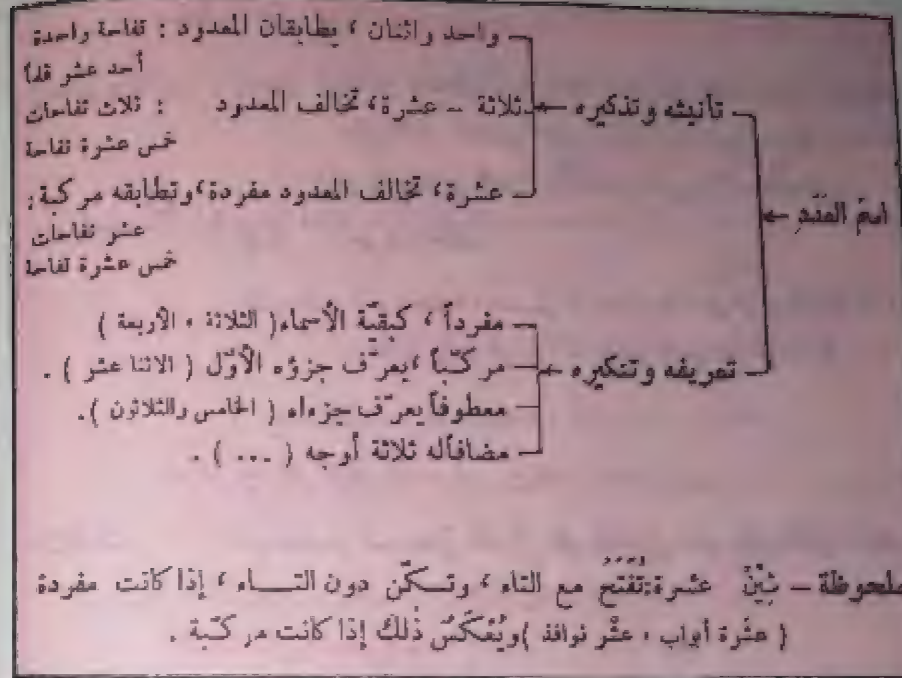 واحد واثنان ، يطابقان المعدود : تفاحة واحدة
أحد عشر قلماً
ثلاثة – عشرة، تخالف المعدود : ثلاث تفاحات
تأنيثه وتذكيره
خمس عشرة تفاحة
عشرة، تخالف المعدود مفردة، وتطابقه مركبة:
اسمُ العَدَدِ
عشر تفاحات
خمس عشرة تفاحة
مفرداً ، كبقيّة الأسماء ( الثلاثة ، الأربعة )
مركّباً ، يعرّف جزؤه الأوّل ( الاثنا عشر ) .
تعريفه وتنكيره
معطوفاً يعرّف جزءاه ( الخامس والثلاثون ) .
مضافاً له ثلاثة أوجه ( ... ) .
ملحوظة – شِيْنُ عشرة: تُفْتَحُ مع التاء ، وتسكّن دون التـاء ، إذا كانت مفردة
( عشَرة أبواب ، عشْر نوافذ ) ويُعْكَسُ ذٰلك إذا كانت مركّبة .